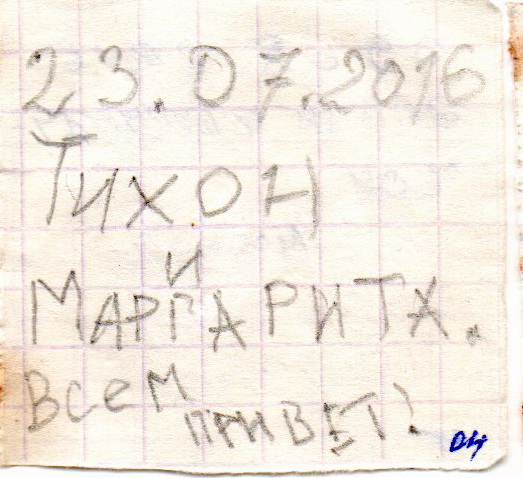 23.07.2016
Тихон
и
Маргарита.
Всем
привет!